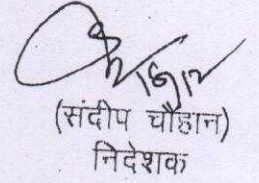 (संदीप चौहान)
निदेशक